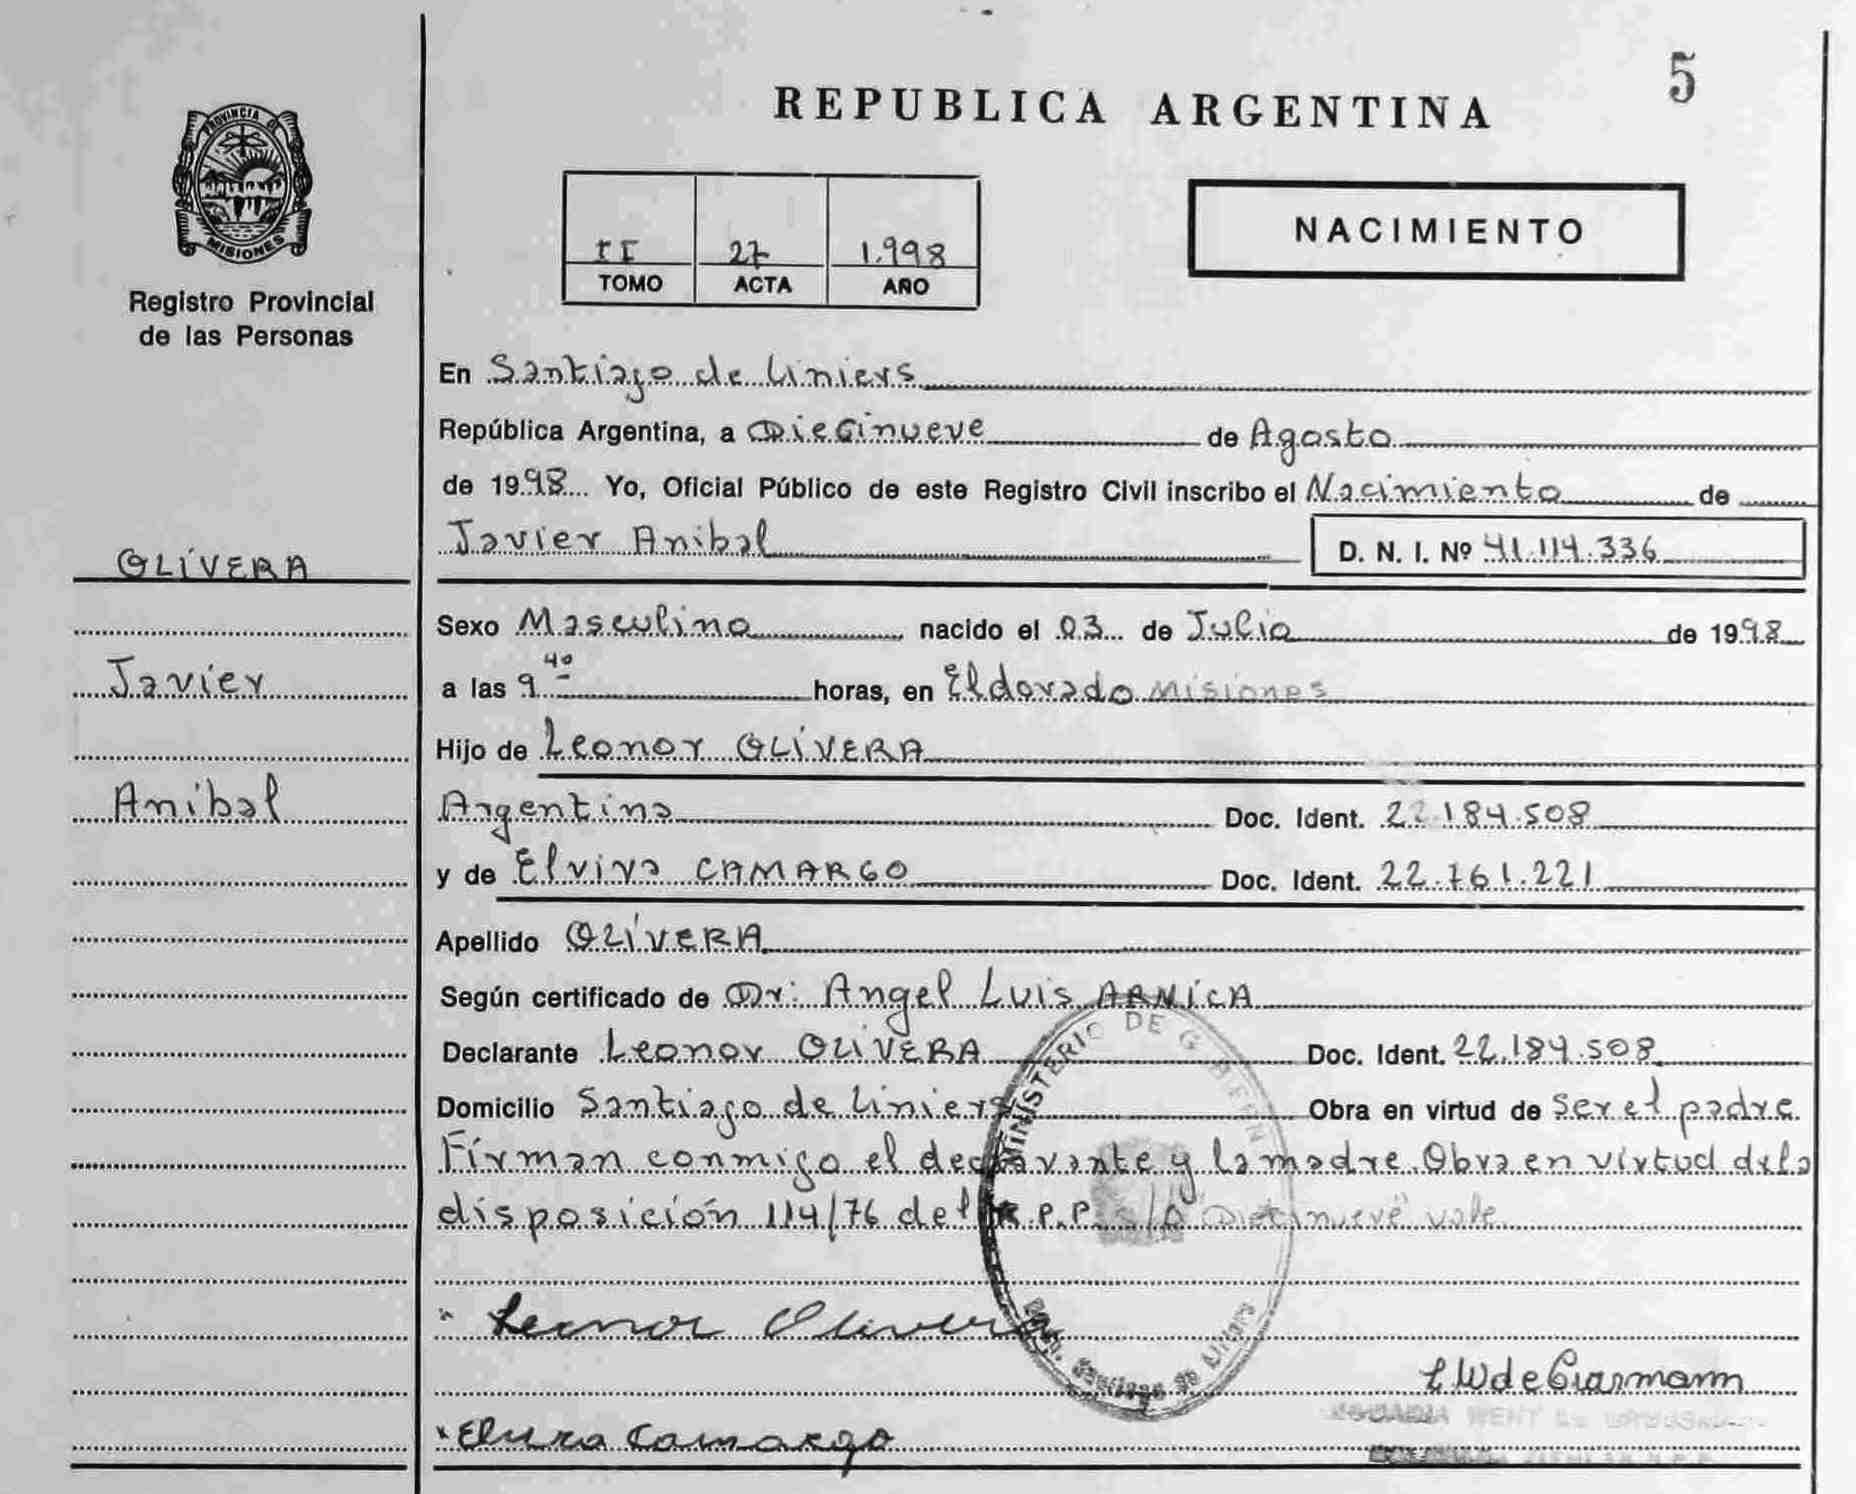 5
REPUBLICA ARGENTINA
PROVINCIA DE
MISIONES
Registro Provincial
de las Personas
II 27 1.998
TOMO ACTA AÑO
NACIMIENTO
En Santiago de Liniers
República Argentina, a Diecinueve de Agosto
de 1998 Yo, Oficial Público de este Registro Civil inscribo el Nacimiento de
Javier Anibal D. N. I. Nº 41.114.336
OLIVERA
Javier
Anibal
Sexo Masculino nacido el 03 de Julio de 1998
a las 9 40 horas, en Eldorado Misiones
Hijo de Leonor OLIVERA
Argentina Doc. Ident. 22.184.508
y de Elvira CAMARGO Doc. Ident. 22.761.221
Apellido OLIVERA
Según certificado de Dr. Angel Luis ARNICA
Declarante Leonor OLIVERA Doc. Ident. 22.184.508
Domicilio Santiago de Liniers Obra en virtud de ser el padre
Firman conmigo el declarante y la madre. Obra en virtud dela
disposición 114/76 del R.P.P. s/a "Diecinueve" vale.
MINISTERIO DE GOBIERNO
Santiago de Liniers
Leonor Olivera
Elvira Camargo